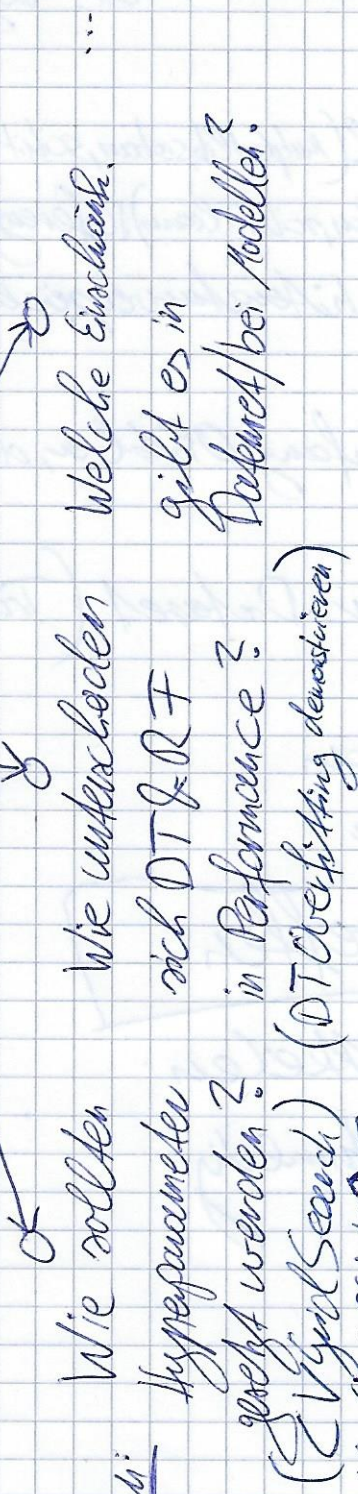 Wie sollten
Hyperparameter
gesetzt werden?
(CV/GridSearch)
Wie unterscheiden
sich DT & RF
in Performance?
(DT Overfitting demonstrieren)
Welche Einschränk.
gibt es in
Datenset/bei Modellen?
...